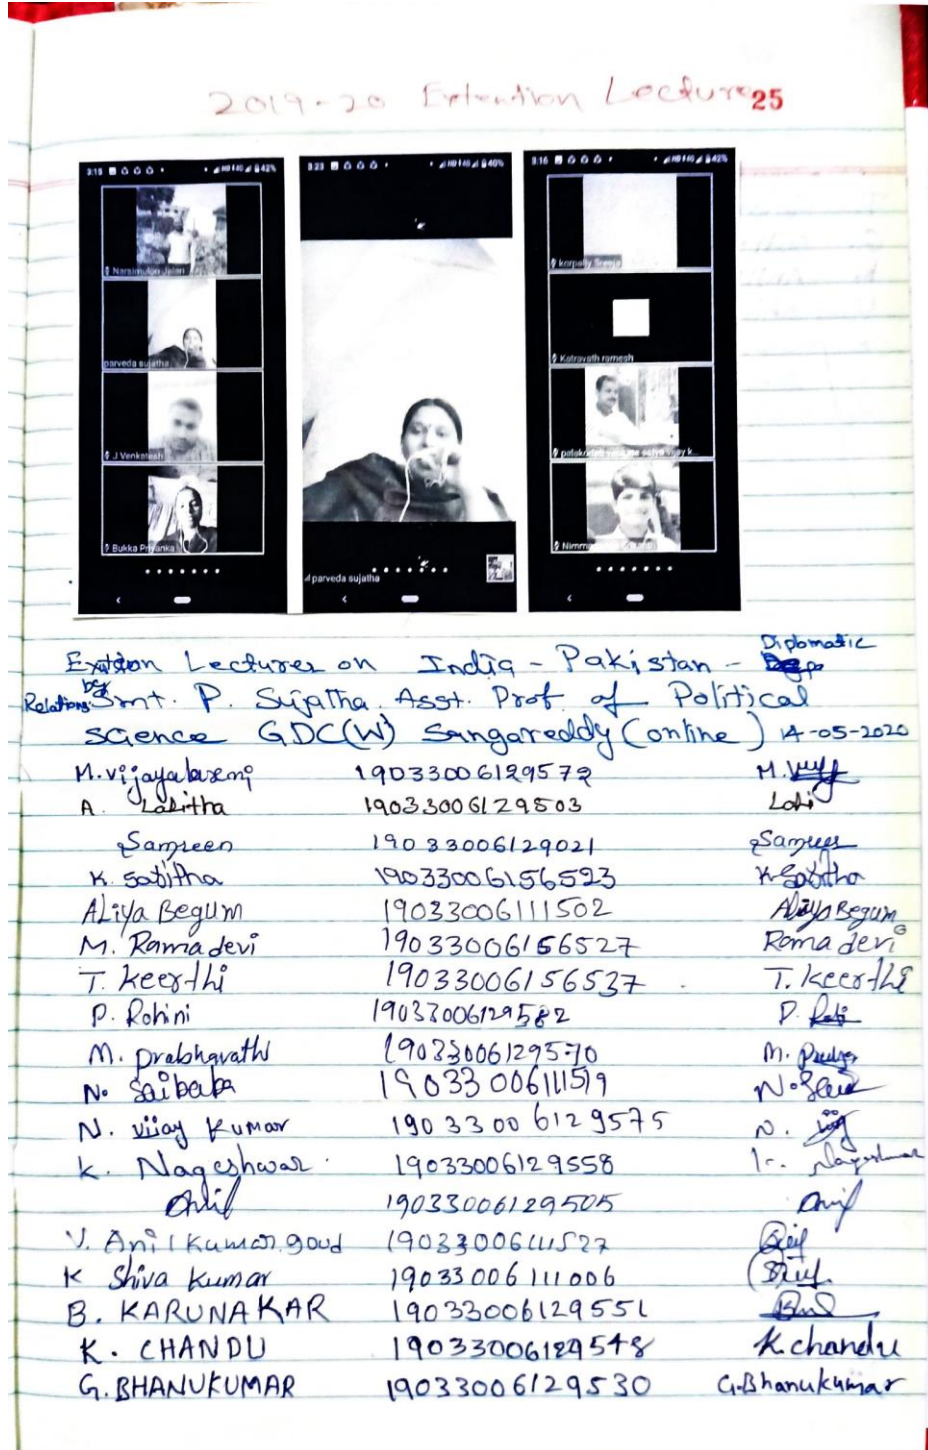 2019-20 Extention Lecture 25
3:15 42%
Narsimulon Jalari
parveda sujatha
J Venkatesh
Bukka Priyanka
3:23 40%
parveda sujatha
3:16 42%
korpally Sreeja
Katravath ramesh
Nimm
Extetion Lectures on India - Pakistan - Diplomatic
Relations by Smt. P. Sujatha. Asst. Prof. of Political
science GDC(W) Sangareddy (online) 14-05-2020
M. vijayalaxmi 19033006129572 M.
A. Lalitha 19033006129503 Lali
Samreen 19033006129021 Samreen
K. Sabitha 19033006156523 K. Sabitha
ALiya Begum 19033006111502 Aliya Begum
M. Ramadevi 19033006156527 Rama devi
T. Keerthi 19033006156537 T. Keerthi
P. Rohini 19033006129582 P.
M. prabhavathi 19033006129570 M.
N. Saibaba 19033006111519 N.
N. vijay Kumar 19033006129575 N.
K. Nageshwar. 19033006129558 K. Nageshwar
19033006129505
V. Anil Kumar. goud 19033006111527
K Shiva Kumar 19033006111006
B. KARUNAKAR 19033006129551
K. CHANDU 19033006129548 K. chandu
G. BHANUKUMAR 19033006129530 G. Bhanukumar